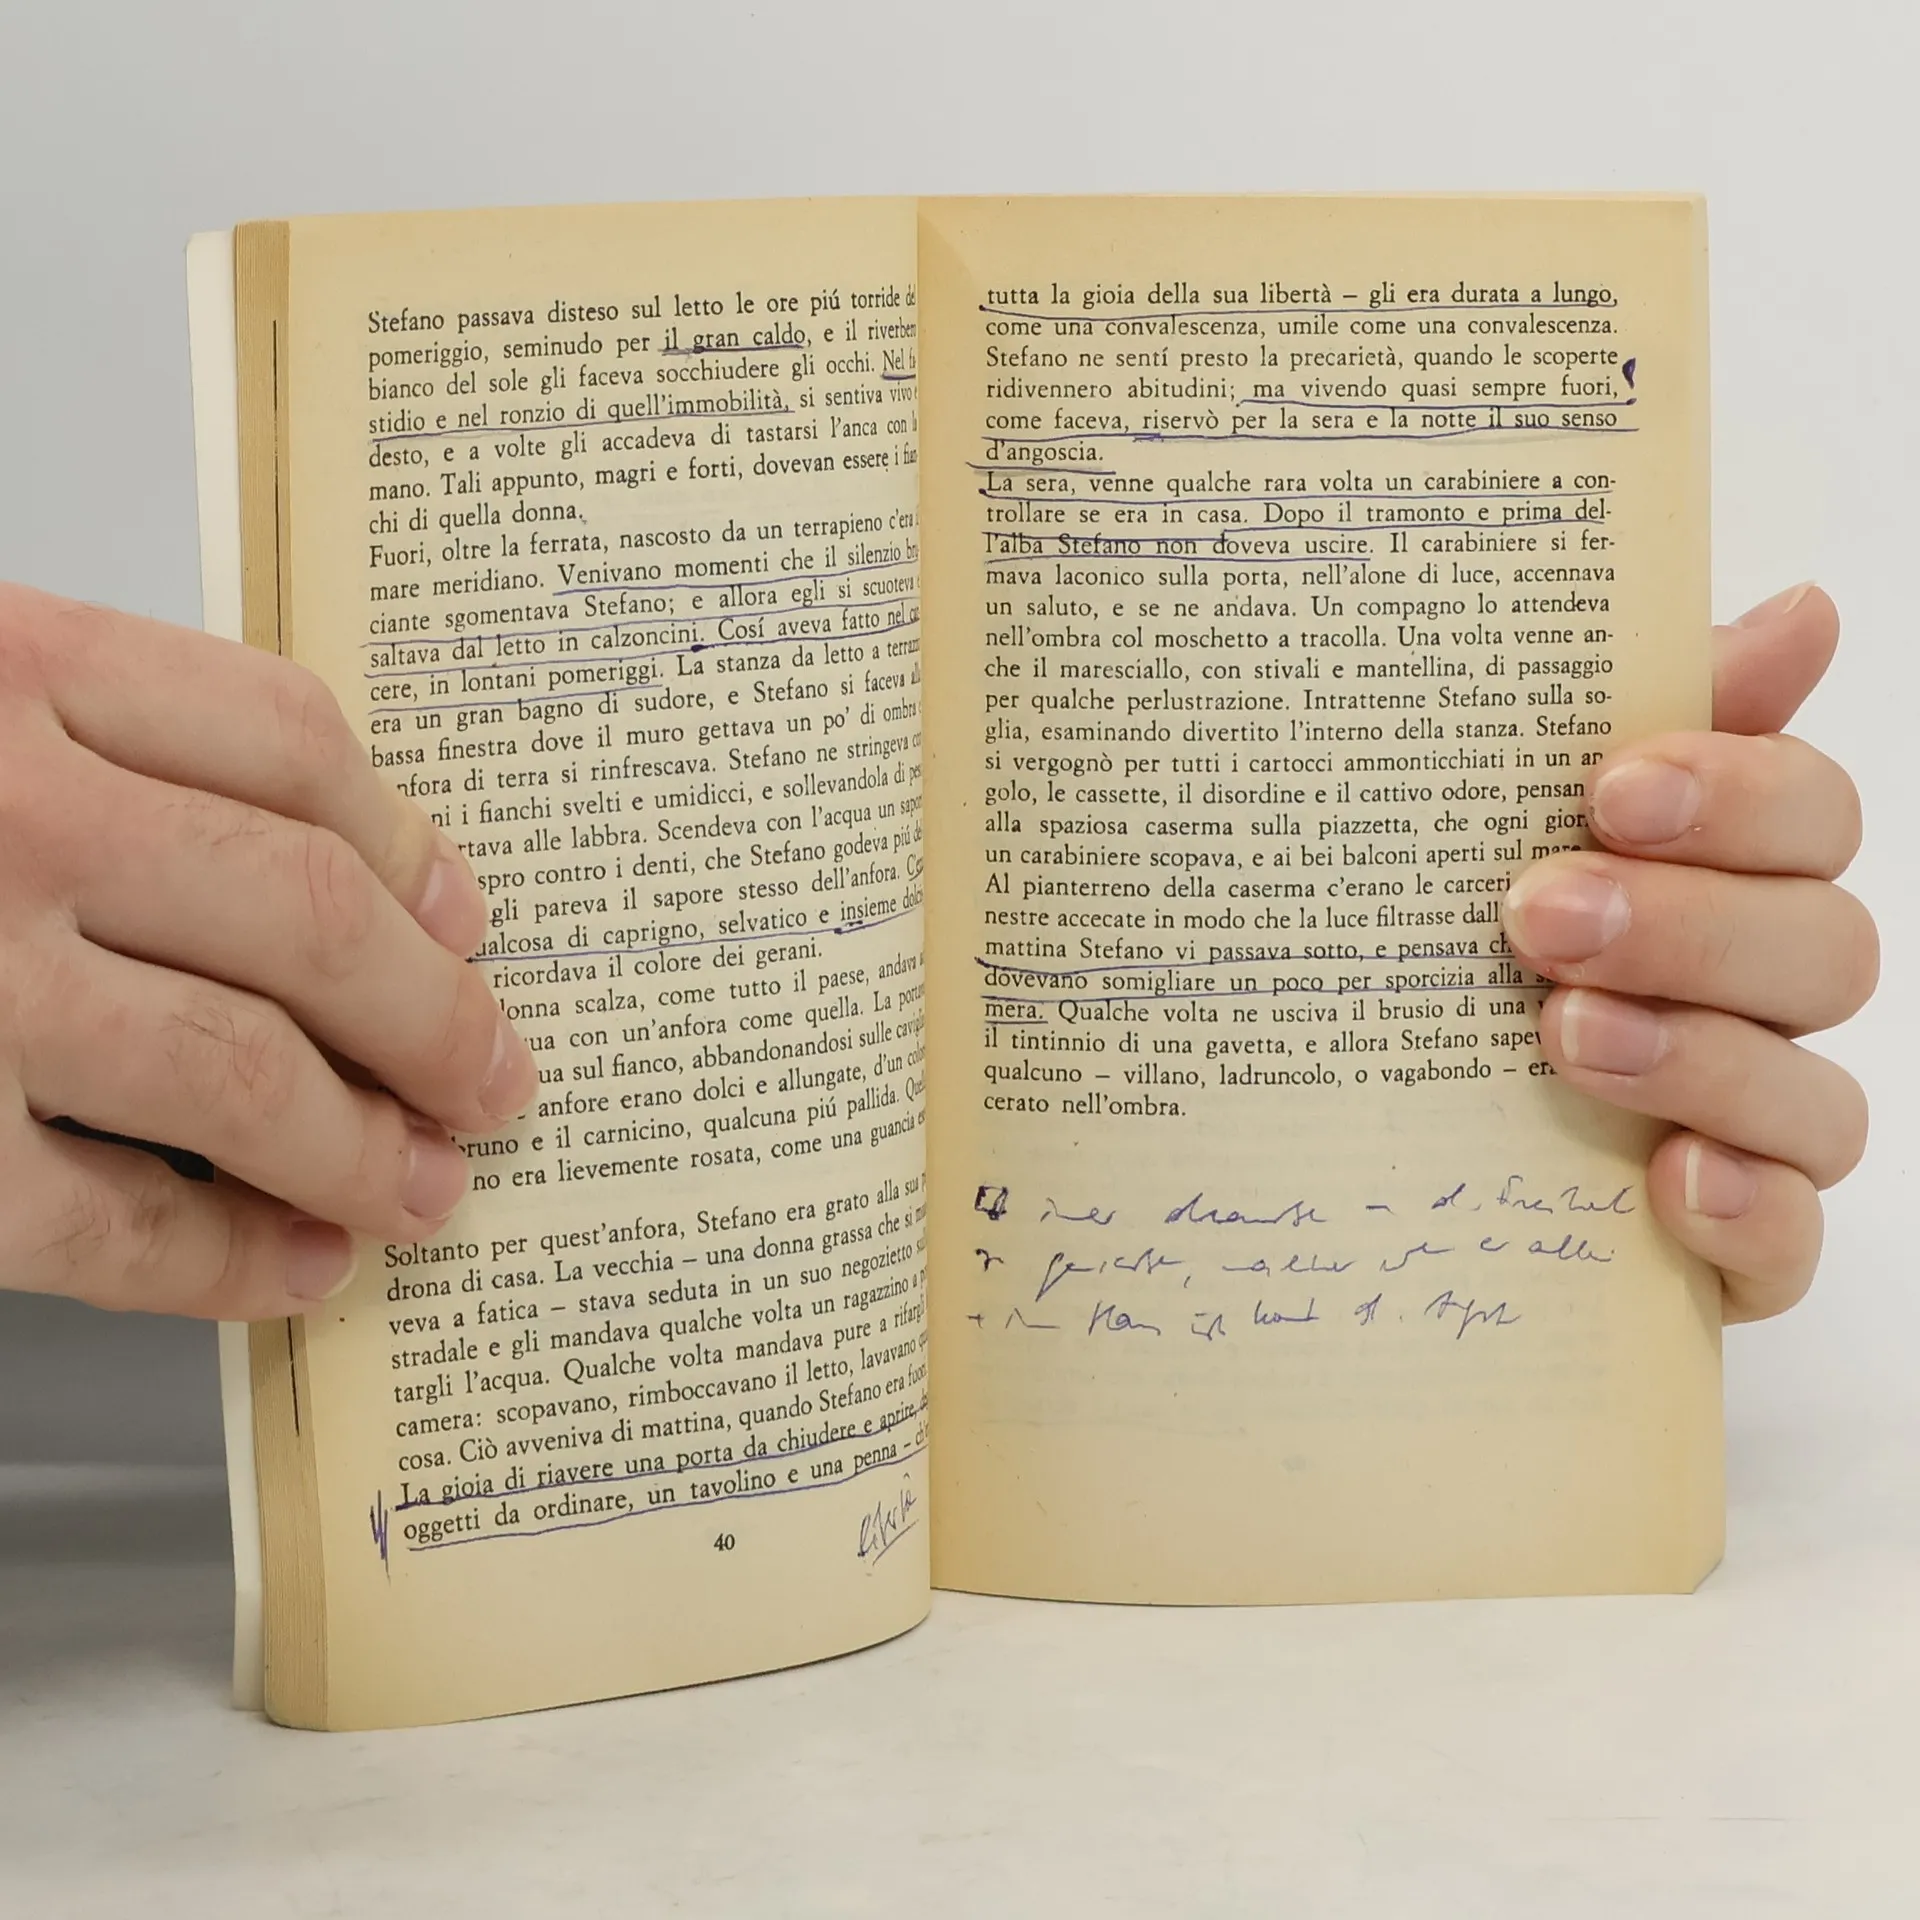 Stefano passava disteso sul letto le ore piú torride del
pomeriggio, seminudo per il gran caldo, e il riverbero
bianco del sole gli faceva socchiudere gli occhi. Nel fa
stidio e nel ronzio di quell'immobilità, si sentiva vivo e
desto, e a volte gli accadeva di tastarsi l'anca con la
mano. Tali appunto, magri e forti, dovevan essere i fian
chi di quella donna.
Fuori, oltre la ferrata, nascosto da un terrapieno c'era il
mare meridiano. Venivano momenti che il silenzio bru
ciante sgomentava Stefano; e allora egli si scuoteva e
saltava dal letto in calzoncini. Cosí aveva fatto nel car
cere, in lontani pomeriggi. La stanza da letto a terrazzo
era un gran bagno di sudore, e Stefano si faceva alla
bassa finestra dove il muro gettava un po' di ombra e
nfora di terra si rinfrescava. Stefano ne stringeva con
ni i fianchi svelti e umidicci, e sollevandola di peso
rtava alle labbra. Scendeva con l'acqua un sapore
spro contro i denti, che Stefano godeva piú de
gli pareva il sapore stesso dell'anfora. C'era
ualcosa di caprigno, selvatico e insieme dolce
ricordava il colore dei gerani.
donna scalza, come tutto il paese, andava a
ua con un'anfora come quella. La portava
ua sul fianco, abbandonandosi sulle caviglie
anfore erano dolci e allungate, d'un colore
bruno e il carnicino, qualcuna piú pallida. Quel
no era lievemente rosata, come una guancia es
Soltanto per quest'anfora, Stefano era grato alla sua pa
drona di casa. La vecchia – una donna grassa che si muo
veva a fatica – stava seduta in un suo negozietto sul
stradale e gli mandava qualche volta un ragazzino a por
targli l'acqua. Qualche volta mandava pure a rifargli la
camera: scopavano, rimboccavano il letto, lavavano qual
cosa. Ciò avveniva di mattina, quando Stefano era fuori.
La gioia di riavere una porta da chiudere e aprire, degli
oggetti da ordinare, un tavolino e una penna – ch'era
40
libertà
tutta la gioia della sua libertà – gli era durata a lungo,
come una convalescenza, umile come una convalescenza.
Stefano ne sentí presto la precarietà, quando le scoperte
ridivennero abitudini; ma vivendo quasi sempre fuori,
come faceva, riservò per la sera e la notte il suo senso
d'angoscia.
La sera, venne qualche rara volta un carabiniere a con-
trollare se era in casa. Dopo il tramonto e prima del-
l'alba Stefano non doveva uscire. Il carabiniere si fer-
mava laconico sulla porta, nell'alone di luce, accennava
un saluto, e se ne andava. Un compagno lo attendeva
nell'ombra col moschetto a tracolla. Una volta venne an-
che il maresciallo, con stivali e mantellina, di passaggio
per qualche perlustrazione. Intrattenne Stefano sulla so-
glia, esaminando divertito l'interno della stanza. Stefano
si vergognò per tutti i cartocci ammonticchiati in un an
golo, le cassette, il disordine e il cattivo odore, pensan
alla spaziosa caserma sulla piazzetta, che ogni gior
un carabiniere scopava, e ai bei balconi aperti sul mare
Al pianterreno della caserma c'erano le carceri
nestre accecate in modo che la luce filtrasse dall
mattina Stefano vi passava sotto, e pensava ch
dovevano somigliare un poco per sporcizia alla s
mera. Qualche volta ne usciva il brusio di una
il tintinnio di una gavetta, e allora Stefano sapev
qualcuno – villano, ladruncolo, o vagabondo – er
cerato nell'ombra.